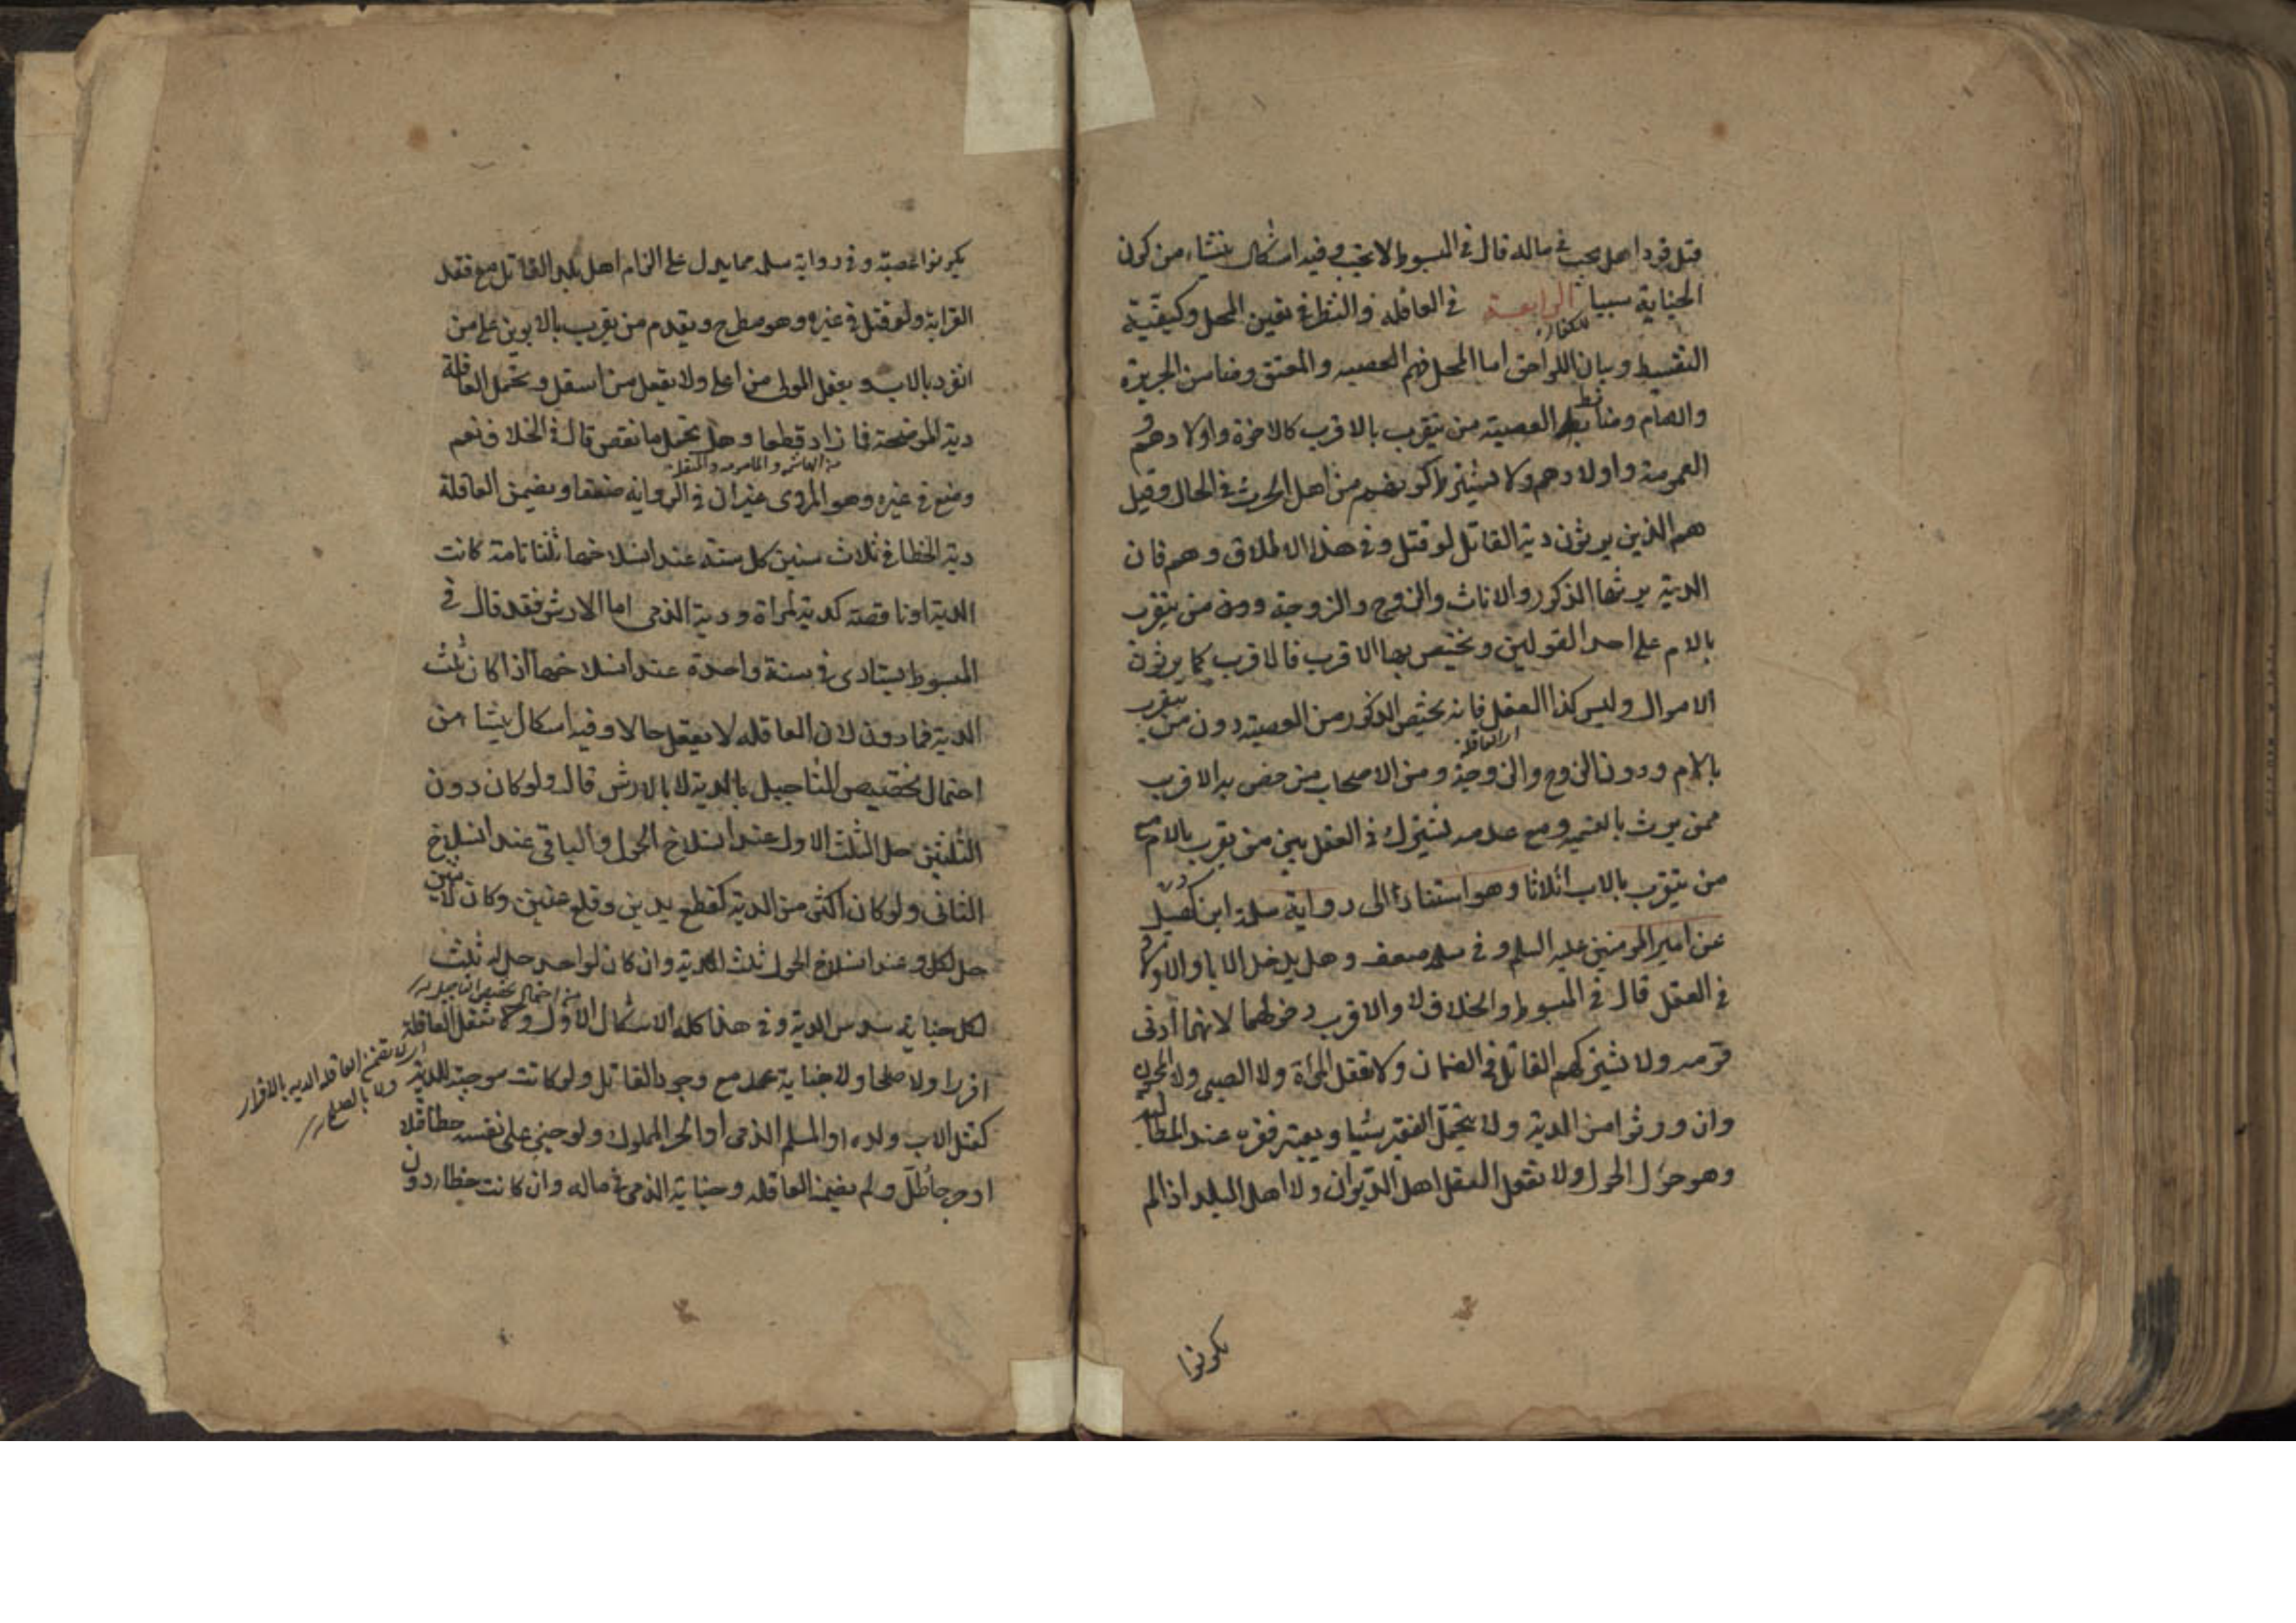 قتل قودا هل يجب في ماله قال في المبسوط لا يجب وفيه اشكال ينشاء من كون
الجناية سببا للكفارة الرابعة في العاقلة والنظر في تعين المحل وكيفية
التقسيط وبيان اللواحق اما المحل فهم العصبه والمعتق وضامن الجريرة
والامام وضابط العصبة من يتقرب بالاقرب كالاخوة واولادهم و
العمومة واولادهم ولا يشترط كونهم من اهل الارث في الحال وقيل
هم الذين يرثون دية القاتل لو قتل وفي هذا الاطلاق وهم فان
الدية يرثها الذكور والاناث والزوج والزوجة ومن يتقرب
بالام على احد القولين ويختص بها الاقرب فالاقرب كما يرثون
الاموال وليس كذا العقل فانه يختص الذكور من العصبة دون من يتقرب
بالام ودون الزوج والزوجة ومن الاصحاب من خص به الاقرب
اي العاقلة
ممن يرث بالتسمية ومع عدمه يشترك في العقل بين من يقرب بالام مع
من يتقرب بالاب اثلاثا وهو استنادا الى رواية سلمة ابن كهيل
عن امير المومنين عليه السلم وفي سلمه ضعف وهل يدخل الاباء والاولاد
في العقل قال في المبسوط والخلاف لا والاقرب دخولهما لانهما ادنى
قومه ولا يشركهم القاتل في الضمان ولا تعقل المرأة ولا الصبي ولا المجنون
وان ورثوا من الدية ولا يتحمل الفقير شيا ويعتبر فقره عند المطالبة
وهو حؤل الحول ولا تعقل العقل اهل الديوان ولا اهل البلد اذا لم
يكونوا
يكونوا عصبة وفي رواية سلمه مما يدل على الزام اهل بلد القاتل مع فقد
القرابة ولو قتل في غيره وهو مطرح ويقدم من يقرب بالابوين على من
انفرد بالاب ويعقل المولى من اعلى ولا يعقل من اسفل وتحمل العاقلة
دية الموضحة فما زاد قطعا وهل تحمل ما نقص قال في الخلاف نعم
من الهاشمة والمامومه والمنقلة
ومنع في غيره وهو المروى غير ان في الرواية ضعفا ويضمن العاقلة
دية الخطا في ثلاث سنين كل سنة عند انسلاخها ثلثا تامة كانت
الدية او ناقصة كدية المراة ودية الذمى اما الارش فقد قال في
المبسوط يستادى في سنة واحدة عند انسلاخها اذا كان ثلث
الدية فما دون لان العاقله لا يعقل حالا وفيه اشكال ينشاء من
احتمال تخصيص التاجيل بالدية لا بالارش قال ولو كان دون
الثلثين حل الثلث الاول عند انسلاخ الحول والباقي عند انسلاخ
الثاني ولو كان اكثر من الدية كقطع يدين وقلع عينين وكان لاثنين
حل لكل عند انسلاخ الحول ثلث الدية وان كان لواحد حل له ثلث
من احتمال تخصيص التاجيل
لكل جناية سدس الدية وفي هذا كله الاشكال الاول ولا تعقل العاقلة
اقرارا ولا صلحا ولا جناية عمد مع وجود القاتل ولو كانت موجبة للدية
اي لا تضمن العاقله الديه بالاقرار
ولا بالصلح
كقتل الاب ولده او المسلم الذمى او الحر المملوك ولو جنى على نفسه خطا قتلا
او جرحا طل ولم يضمنه العاقله وجناية الذمى في ماله وان كانت خطا دون